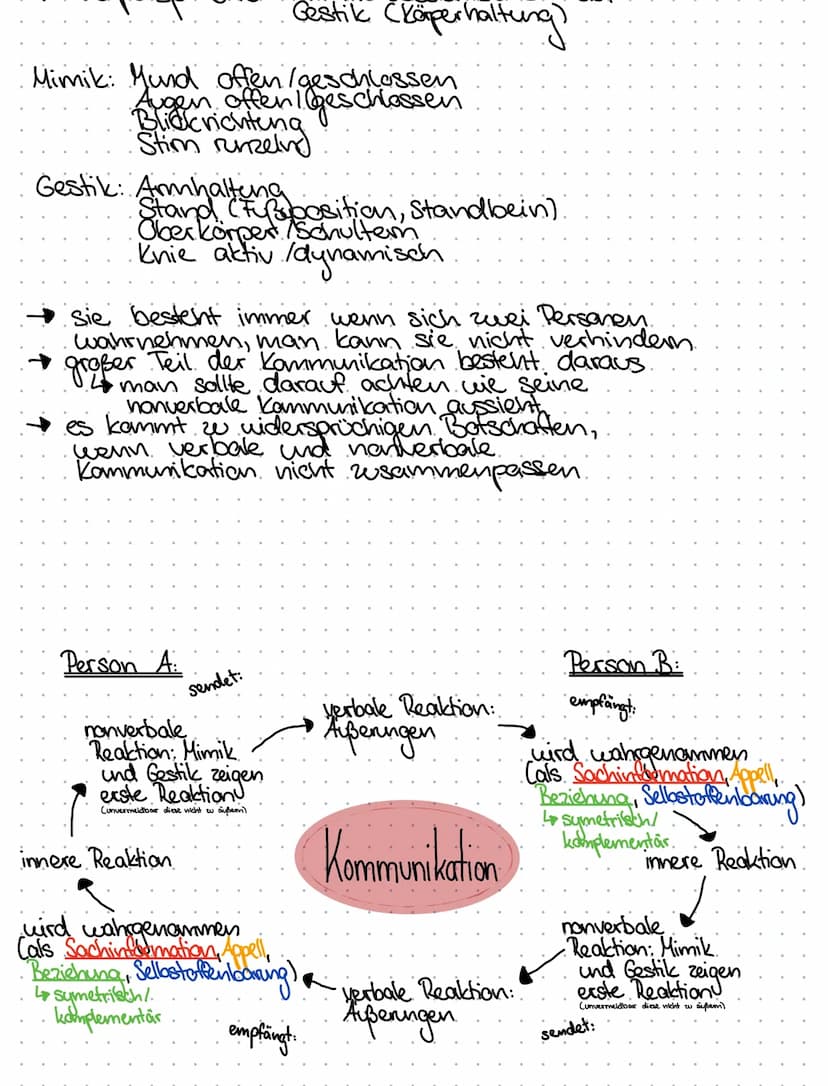 Gestik (Körperhaltung)
Mimik: Mund offen/geschlossen
Augen offen/geschlossen
Blickrichtung
Stirn runzeln
Gestik: Armhaltung
Stand (Fußposition, Standbein)
Oberkörper/Schultern
Knie aktiv/dynamisch
→ sie besteht immer wenn sich zwei Personen
wahrnehmen, man kann sie nicht verhindern
→ großer Teil der Kommunikation besteht daraus
↳ man sollte darauf achten wie seine
nonverbale Kommunikation aussieht
→ es kommt zu widersprüchigen Botschaften,
wenn verbale und nonverbale
Kommunikation nicht zusammenpassen
Person A:
sendet:
nonverbale
Reaktion: Mimik
und Gestik zeigen
erste Reaktion
(unvermeidbar diese nicht zu äußern)
verbale Reaktion:
Äußerungen
Person B:
empfängt:
wird wahrgenommen
(als Sachinformation, Appell,
Beziehung, Selbstoffenbarung)
↳ symetrisch/
komplementär
innere Reaktion
nonverbale
Reaktion: Mimik
und Gestik zeigen
erste Reaktion
(unvermeidbar diese nicht zu äußern)
sendet:
verbale Reaktion:
Äußerungen
empfängt:
wird wahrgenommen
(als Sachinformation, Appell,
Beziehung, Selbstoffenbarung)
↳ symetrisch/
komplementär
innere Reaktion
Kommunikation